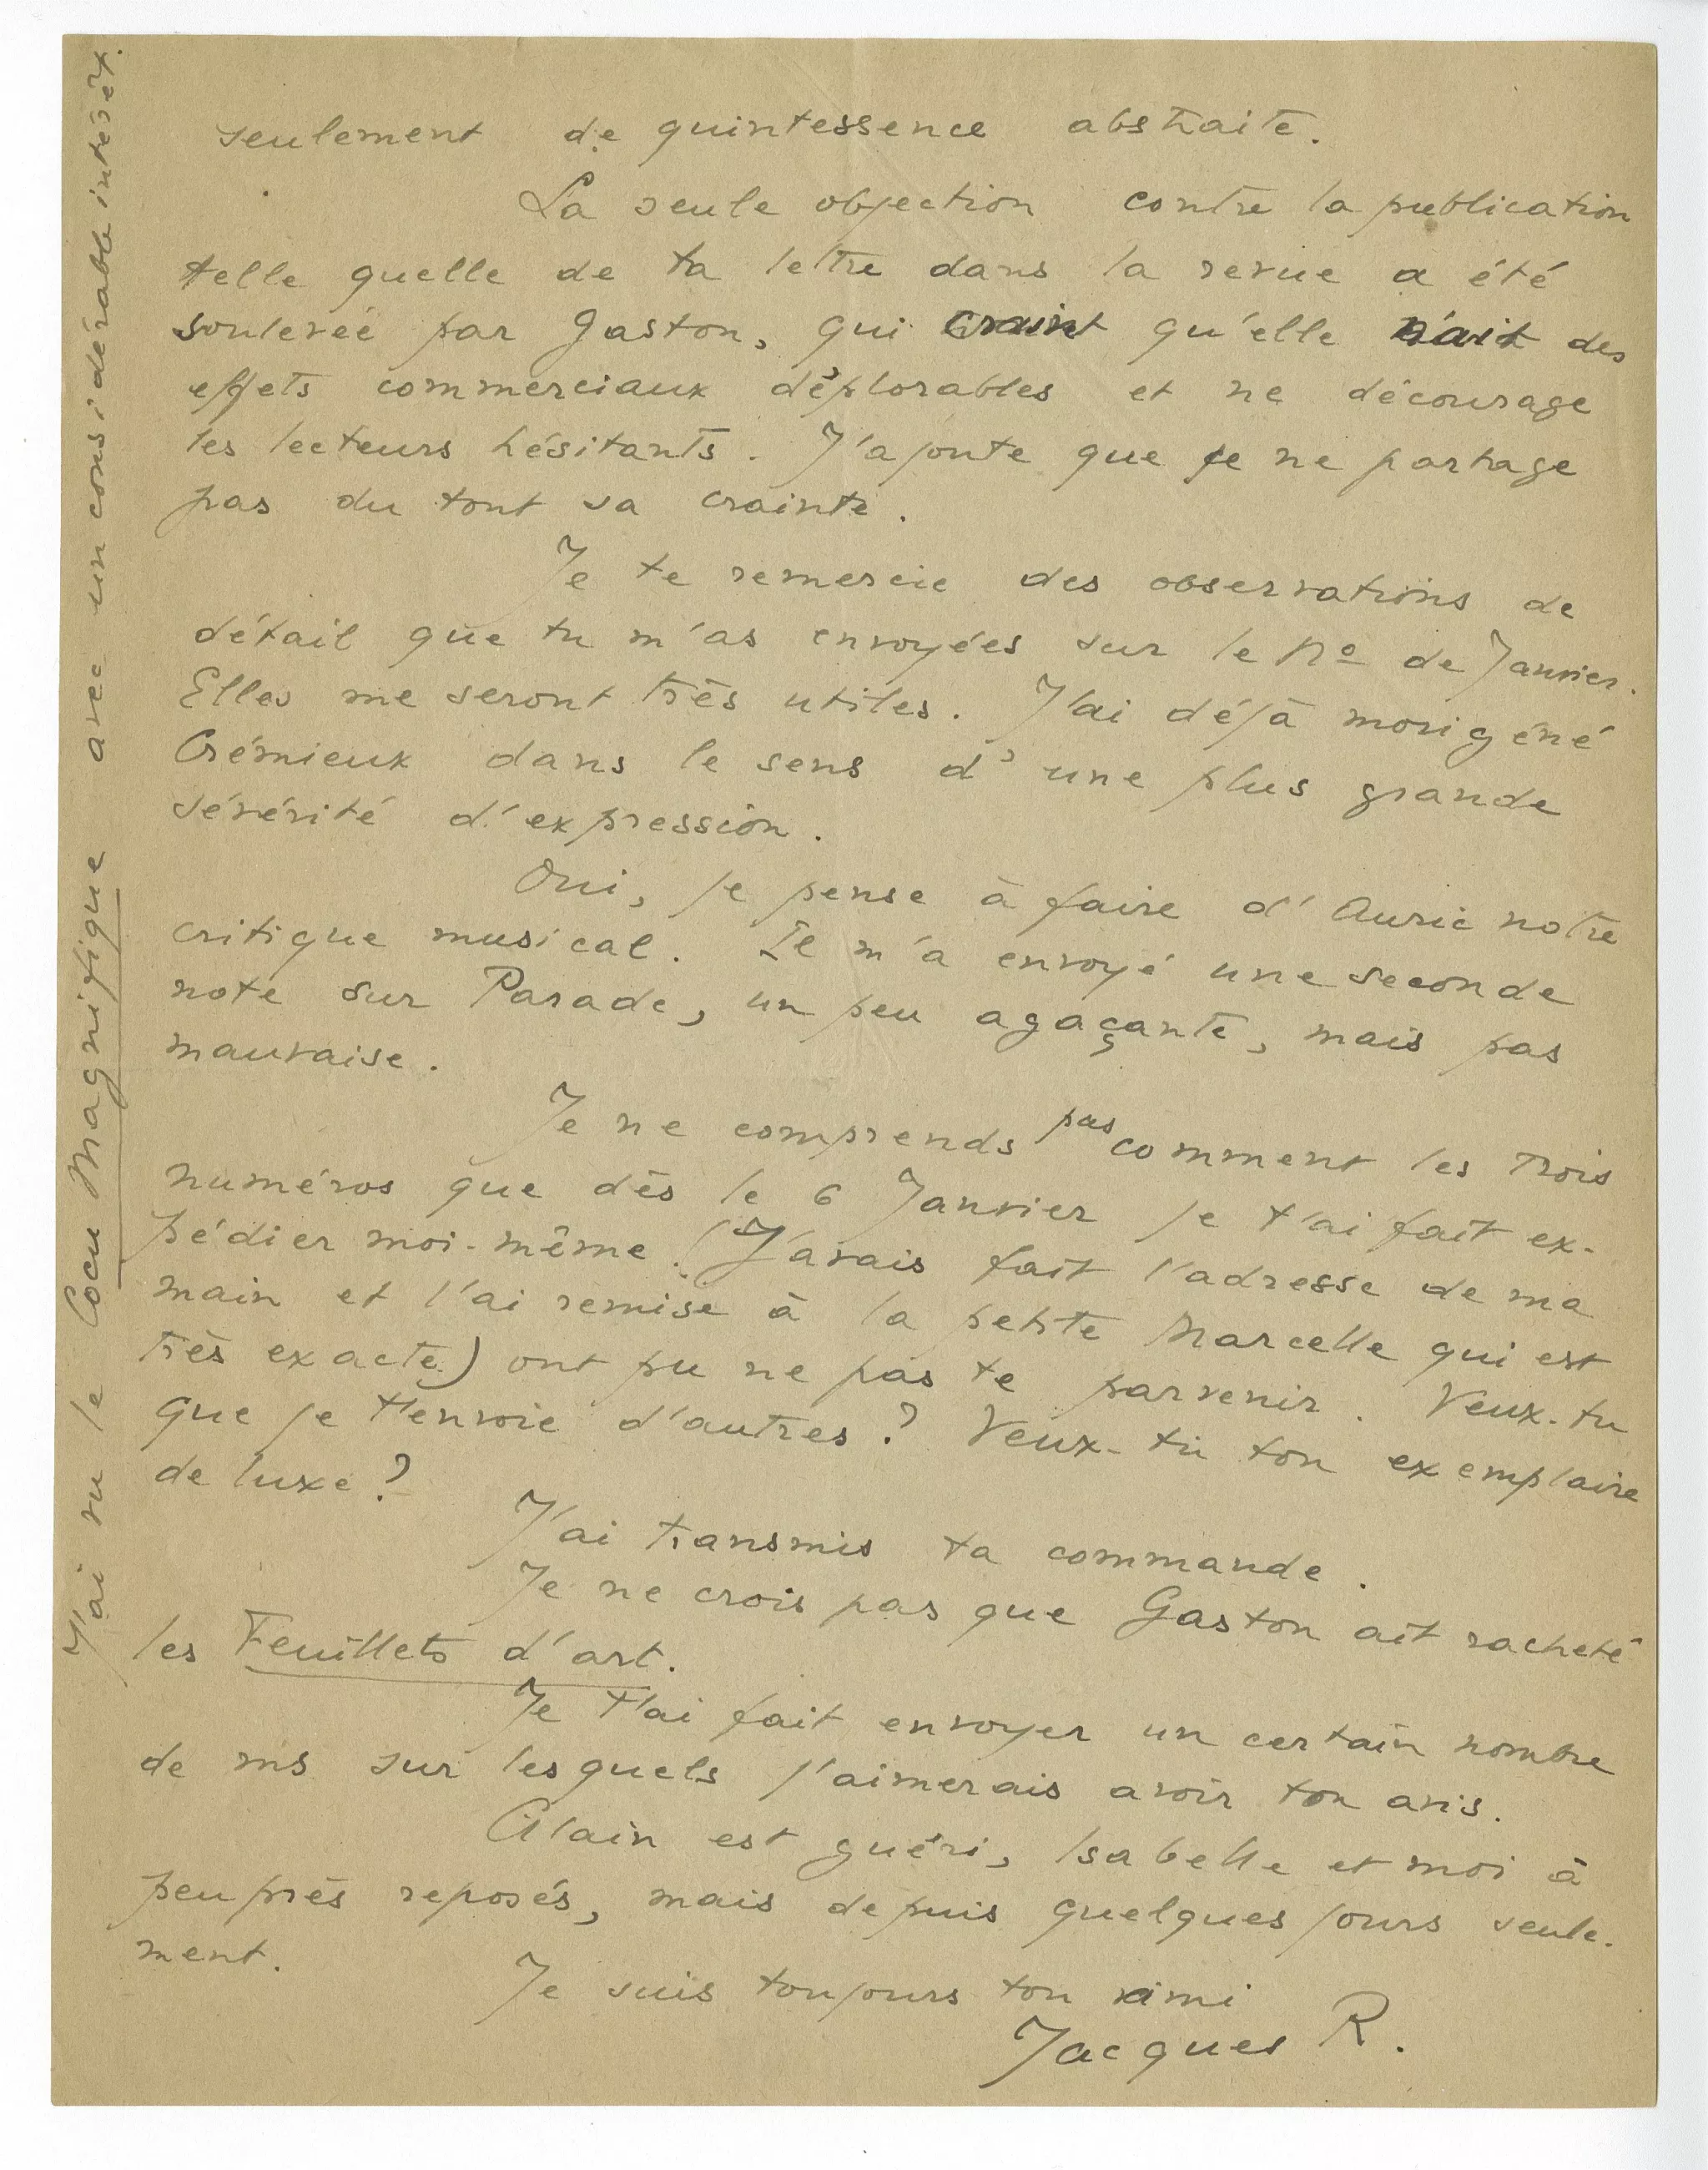 seulement de quintessence abstraite.
La seule objection contre la publication
telle quelle de ta lettre dans la revue a été
soulevée par Gaston, qui craint qu'elle n'ait des
effets commerciaux déplorables et ne décourage
les lecteurs hésitants. J'ajoute que je ne partage
pas du tout sa crainte.
Je te remercie des observations de
détail que tu m'as envoyées sur le No de Janvier.
Elles me seront très utiles. J'ai déjà morigéné
Crémieux dans le sens d'une plus grande
sévérité d'expression.
Oui, je pense à faire d'Auric notre
critique musical. Il m'a envoyé une seconde
note sur Parade, un peu agaçante, mais pas
mauvaise.
Je ne comprends pas comment les trois
numéros que dès le 6 Janvier je t'ai fait ex-
pédier moi-même (J'avais fait l'adresse de ma
main et l'ai remise à la petite Marcelle qui est
très exacte.) ont pu ne pas te parvenir. Veux-tu
que je t'envoie d'autres? Veux-tu ton exemplaire
de luxe?
J'ai transmis ta commande.
Je ne crois pas que Gaston ait racheté
les Feuillets d'art.
Je t'ai fait envoyer un certain nombre
de ms sur lesquels j'aimerais avoir ton avis.
Alain est guéri, Isabelle et moi à
peu près reposés, mais depuis quelques jours seule-
ment.
Je suis toujours ton ami
Jacques R.
J'ai vu le Cocu Magnifique avec un considérable intérêt.